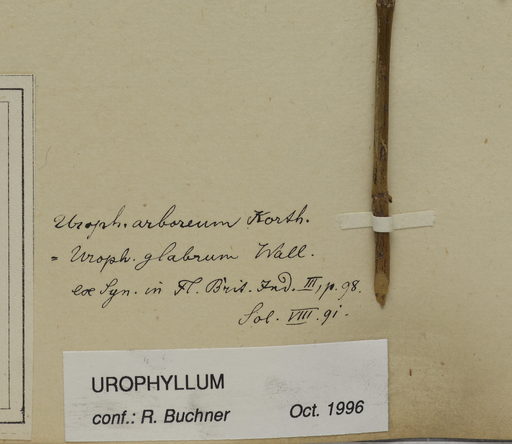 Uroph. arboreum Korth.
= Uroph. glabrum Wall.
ex Syn. in Fl. Brit. Ind. III, p. 98.
Sol. VIII. 91.
UROPHYLLUM
conf.: R. Buchner Oct. 1996